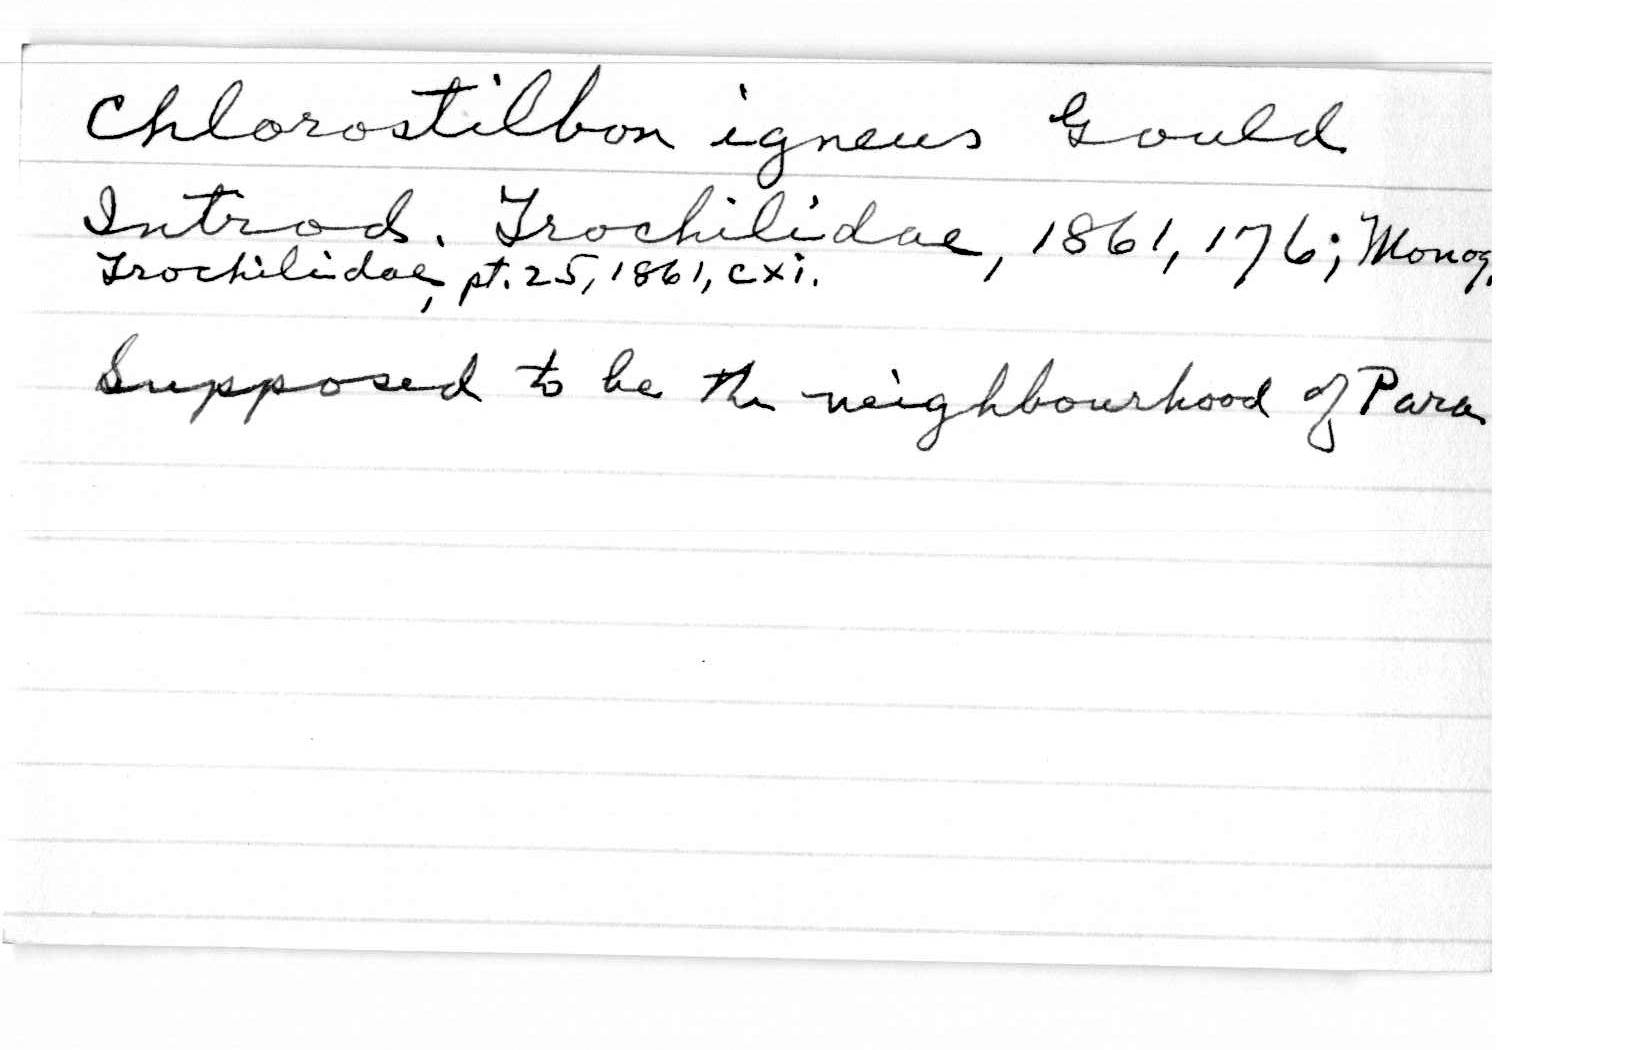 Chlorostilbon igneus Gould
Introd. Trochilidae, 1861, 176; Monog.
Trochilidae, pt. 25, 1861, cxi.
Supposed to be the neighbourhood of Para